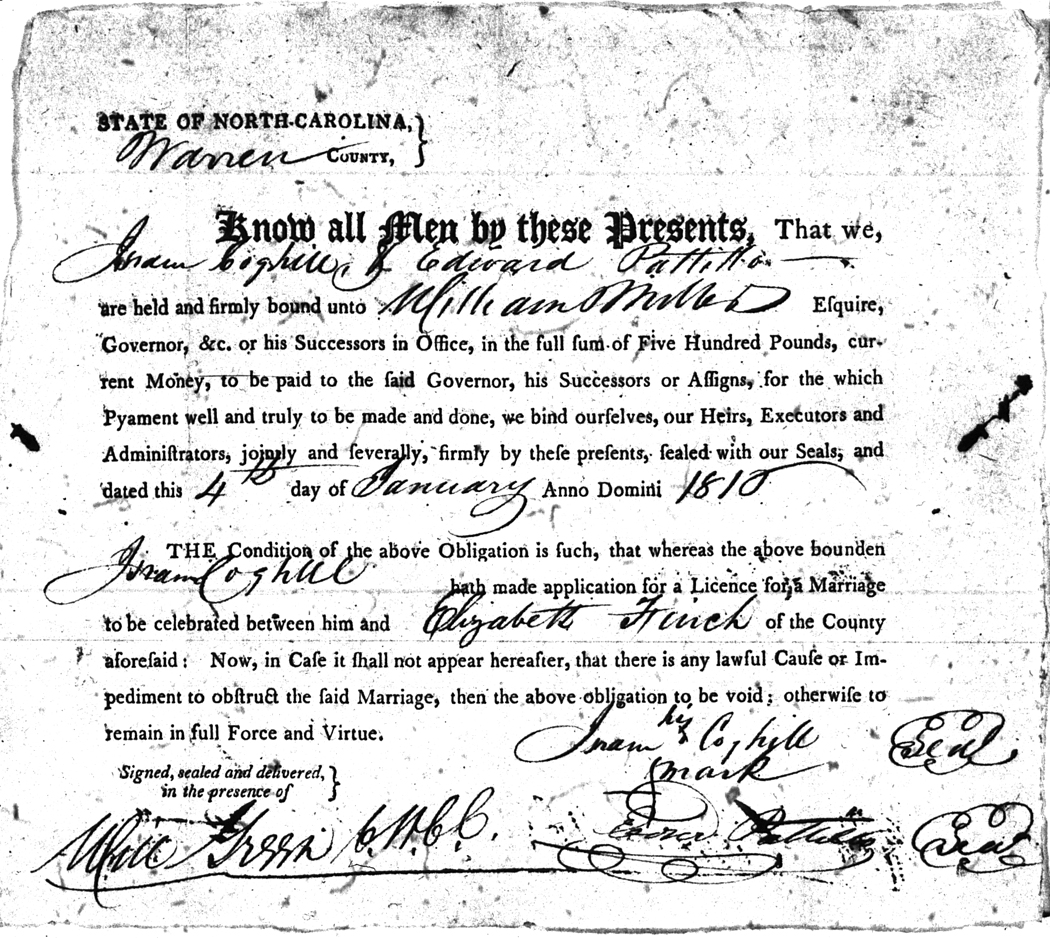 STATE OF NORTH-CAROLINA,
Warren COUNTY,
Know all Men by these Presents, That we,
Isram Coghill, & Edward Pattillo
are held and firmly bound unto William Miller Eſquire,
Governor, &c. or his Successors in Office, in the full ſum of Five Hundred Pounds, cur-
rent Money, to be paid to the ſaid Governor, his Successors or Aſſigns, for the which
Pyament well and truly to be made and done, we bind ourſelves, our Heirs, Executors and
Adminiſtrators, jointly and ſeverally, firmly by theſe preſents, ſealed with our Seals, and
dated this 4th day of January Anno Domini 1818
THE Condition of the above Obligation is ſuch, that whereas the above bounden
Isram Coghill hath made application for a Licence for a Marriage
to be celebrated between him and Elizabeth Finch of the County
aforeſaid: Now, in Caſe it ſhall not appear hereafter, that there is any lawful Cauſe or Im-
pediment to obſtruct the ſaid Marriage, then the above obligation to be void; otherwiſe to
remain in full Force and Virtue.
his
Isram Coghill Seal
mark
Signed, sealed and delivered,
in the presence of
Will Green C.W.C.C. Pattillo Seal